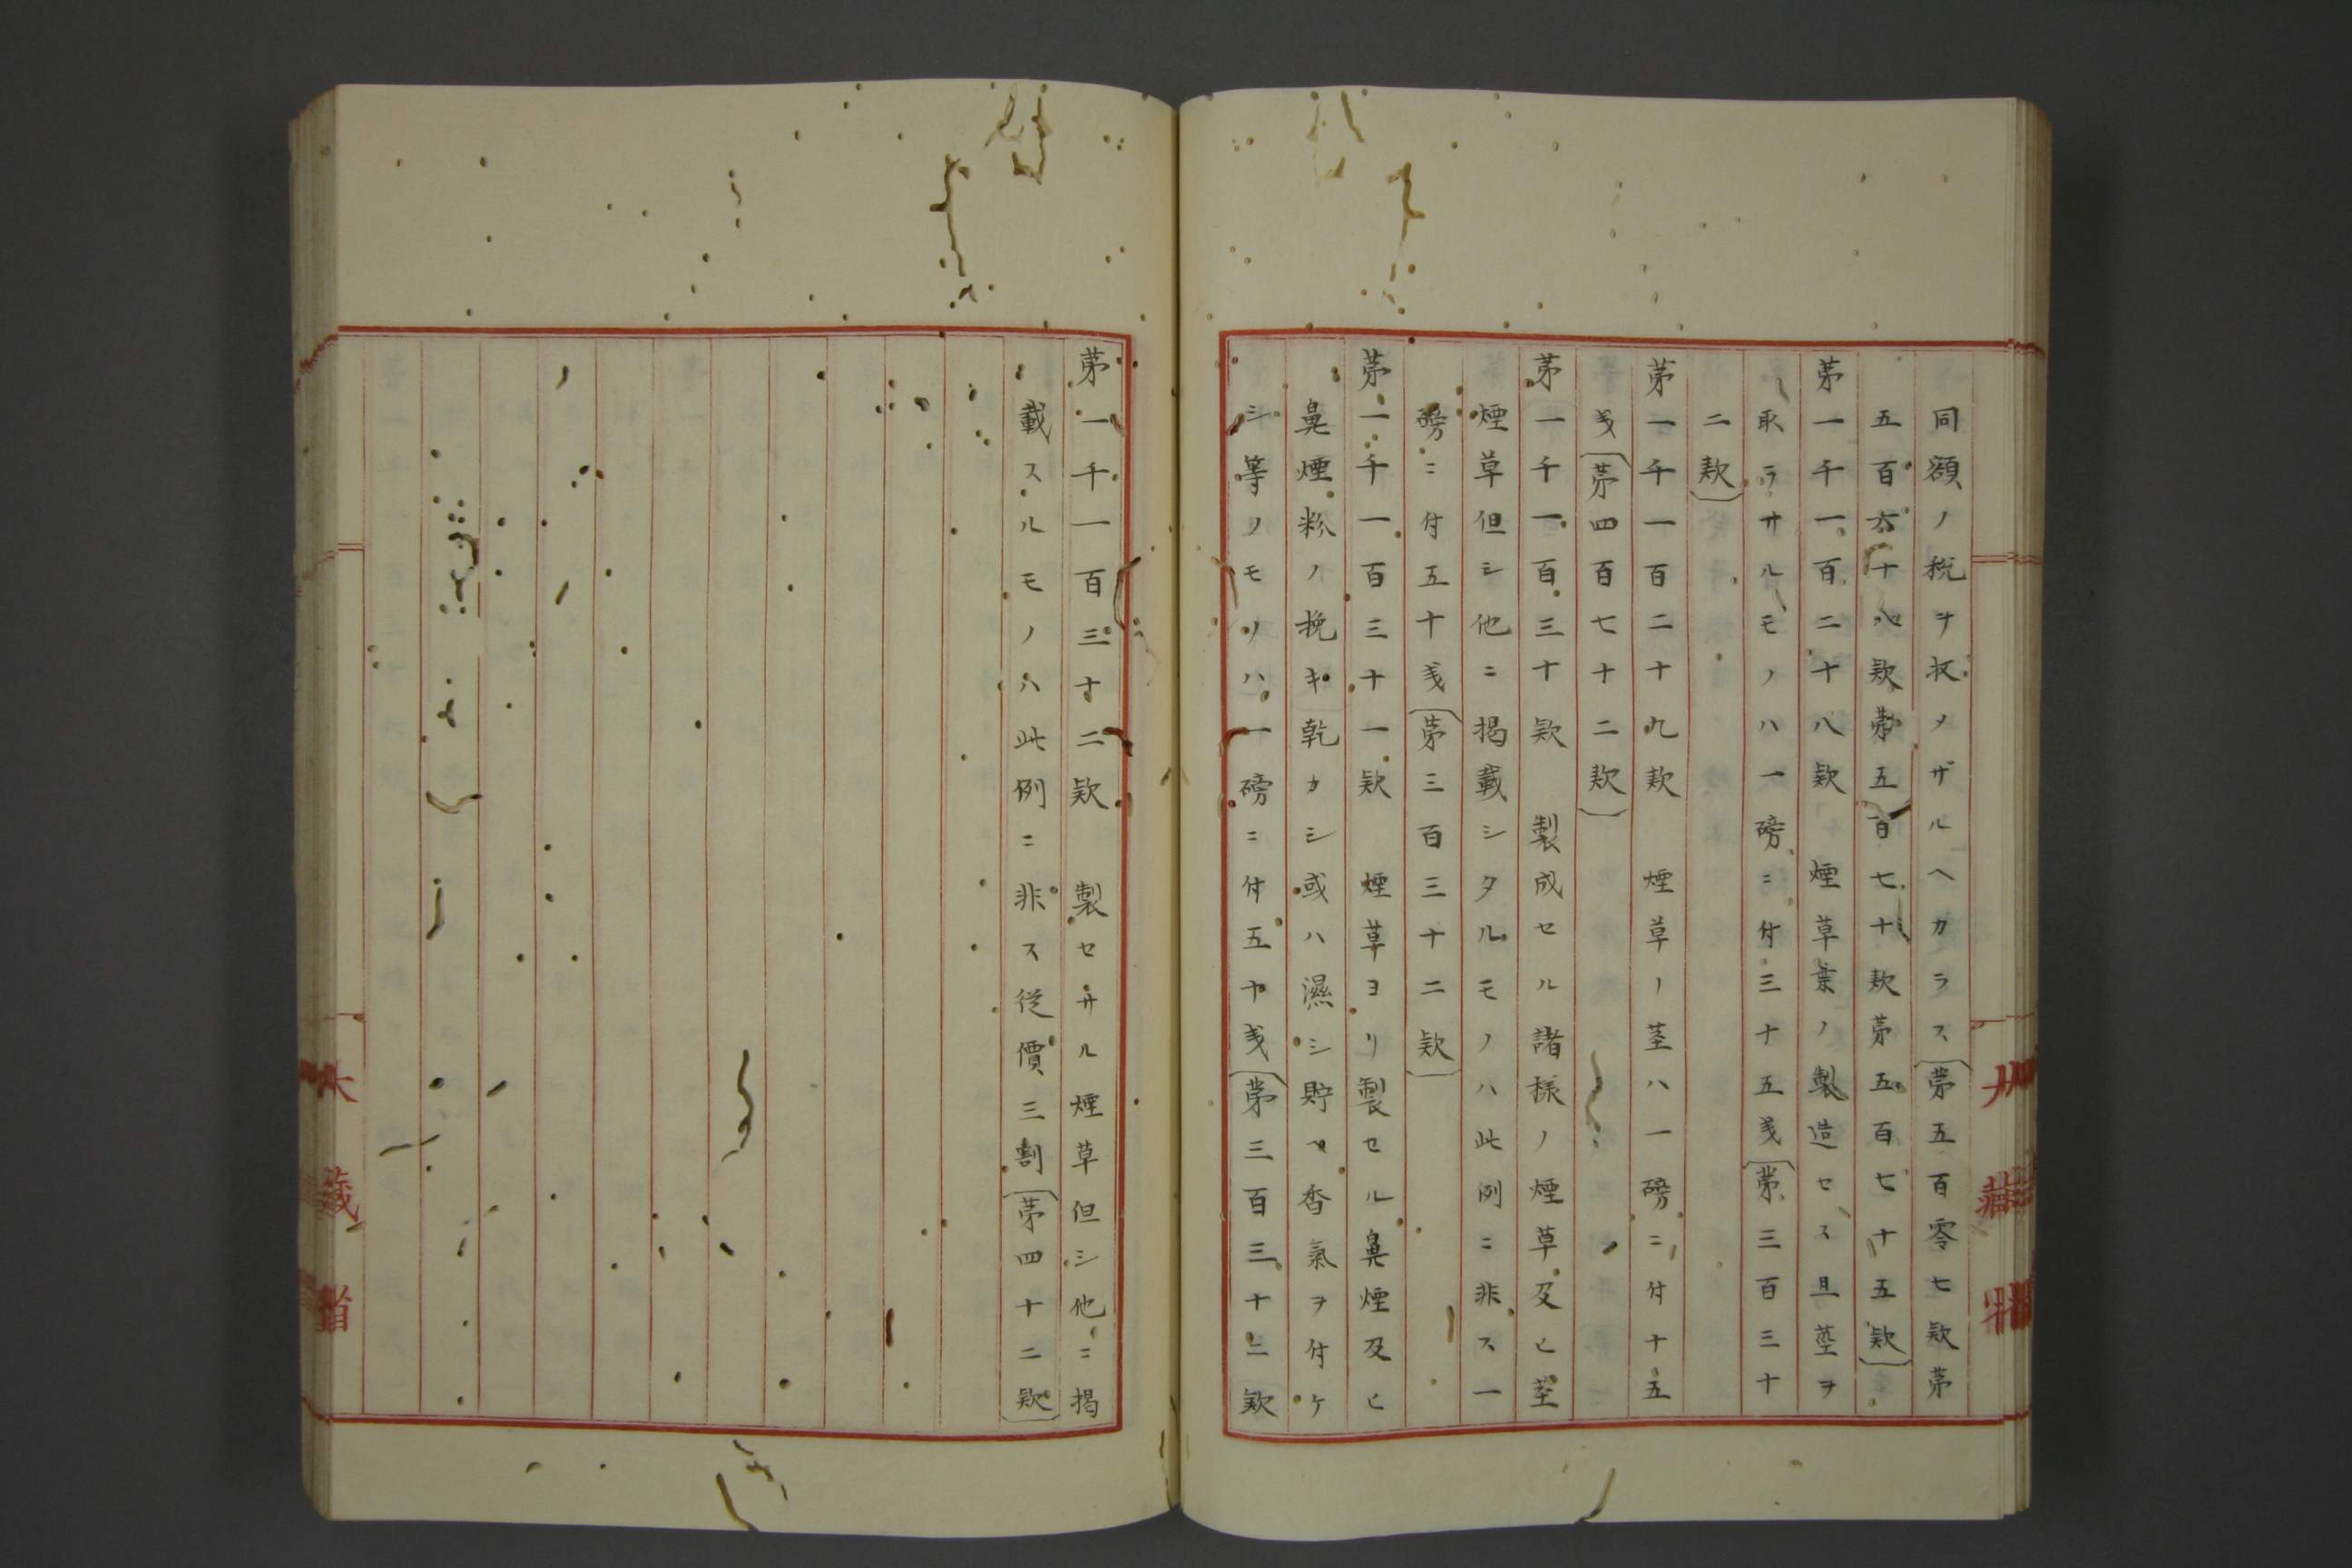 同額ノ税ヲ収メザルヘカラス(第五百零七款第
五百六十八款第五百七十款第五百七十五款)
第一千一百二十八款 煙草葉ノ製造セス且莖ヲ
取ラサルモノハ一磅ニ付三十五戔(第三百三十
二款)
第一千一百二十九款 煙草ノ莖ハ一磅ニ付十五
戔(第四百七十二款)
第一千一百三十款 製成セル諸様ノ煙草及ヒ莖
煙草但シ他ニ掲載シタルモノハ此例ニ非ス一
磅ニ付五十戔(第三百三十二款)
第一千一百三十一款 煙草ヨリ製セル鼻煙及ヒ
鼻煙粉ノ挽キ乾カシ或ハ濕シ貯ヘ香氣ヲ付ケ
シ等ノモノハ一磅ニ付五十戔(第三百三十二款
第一千一百三十二款 製セサル煙草但シ他ニ掲
載スルモノハ此例ニ非ス從價三割(第四十二款)
大藏省